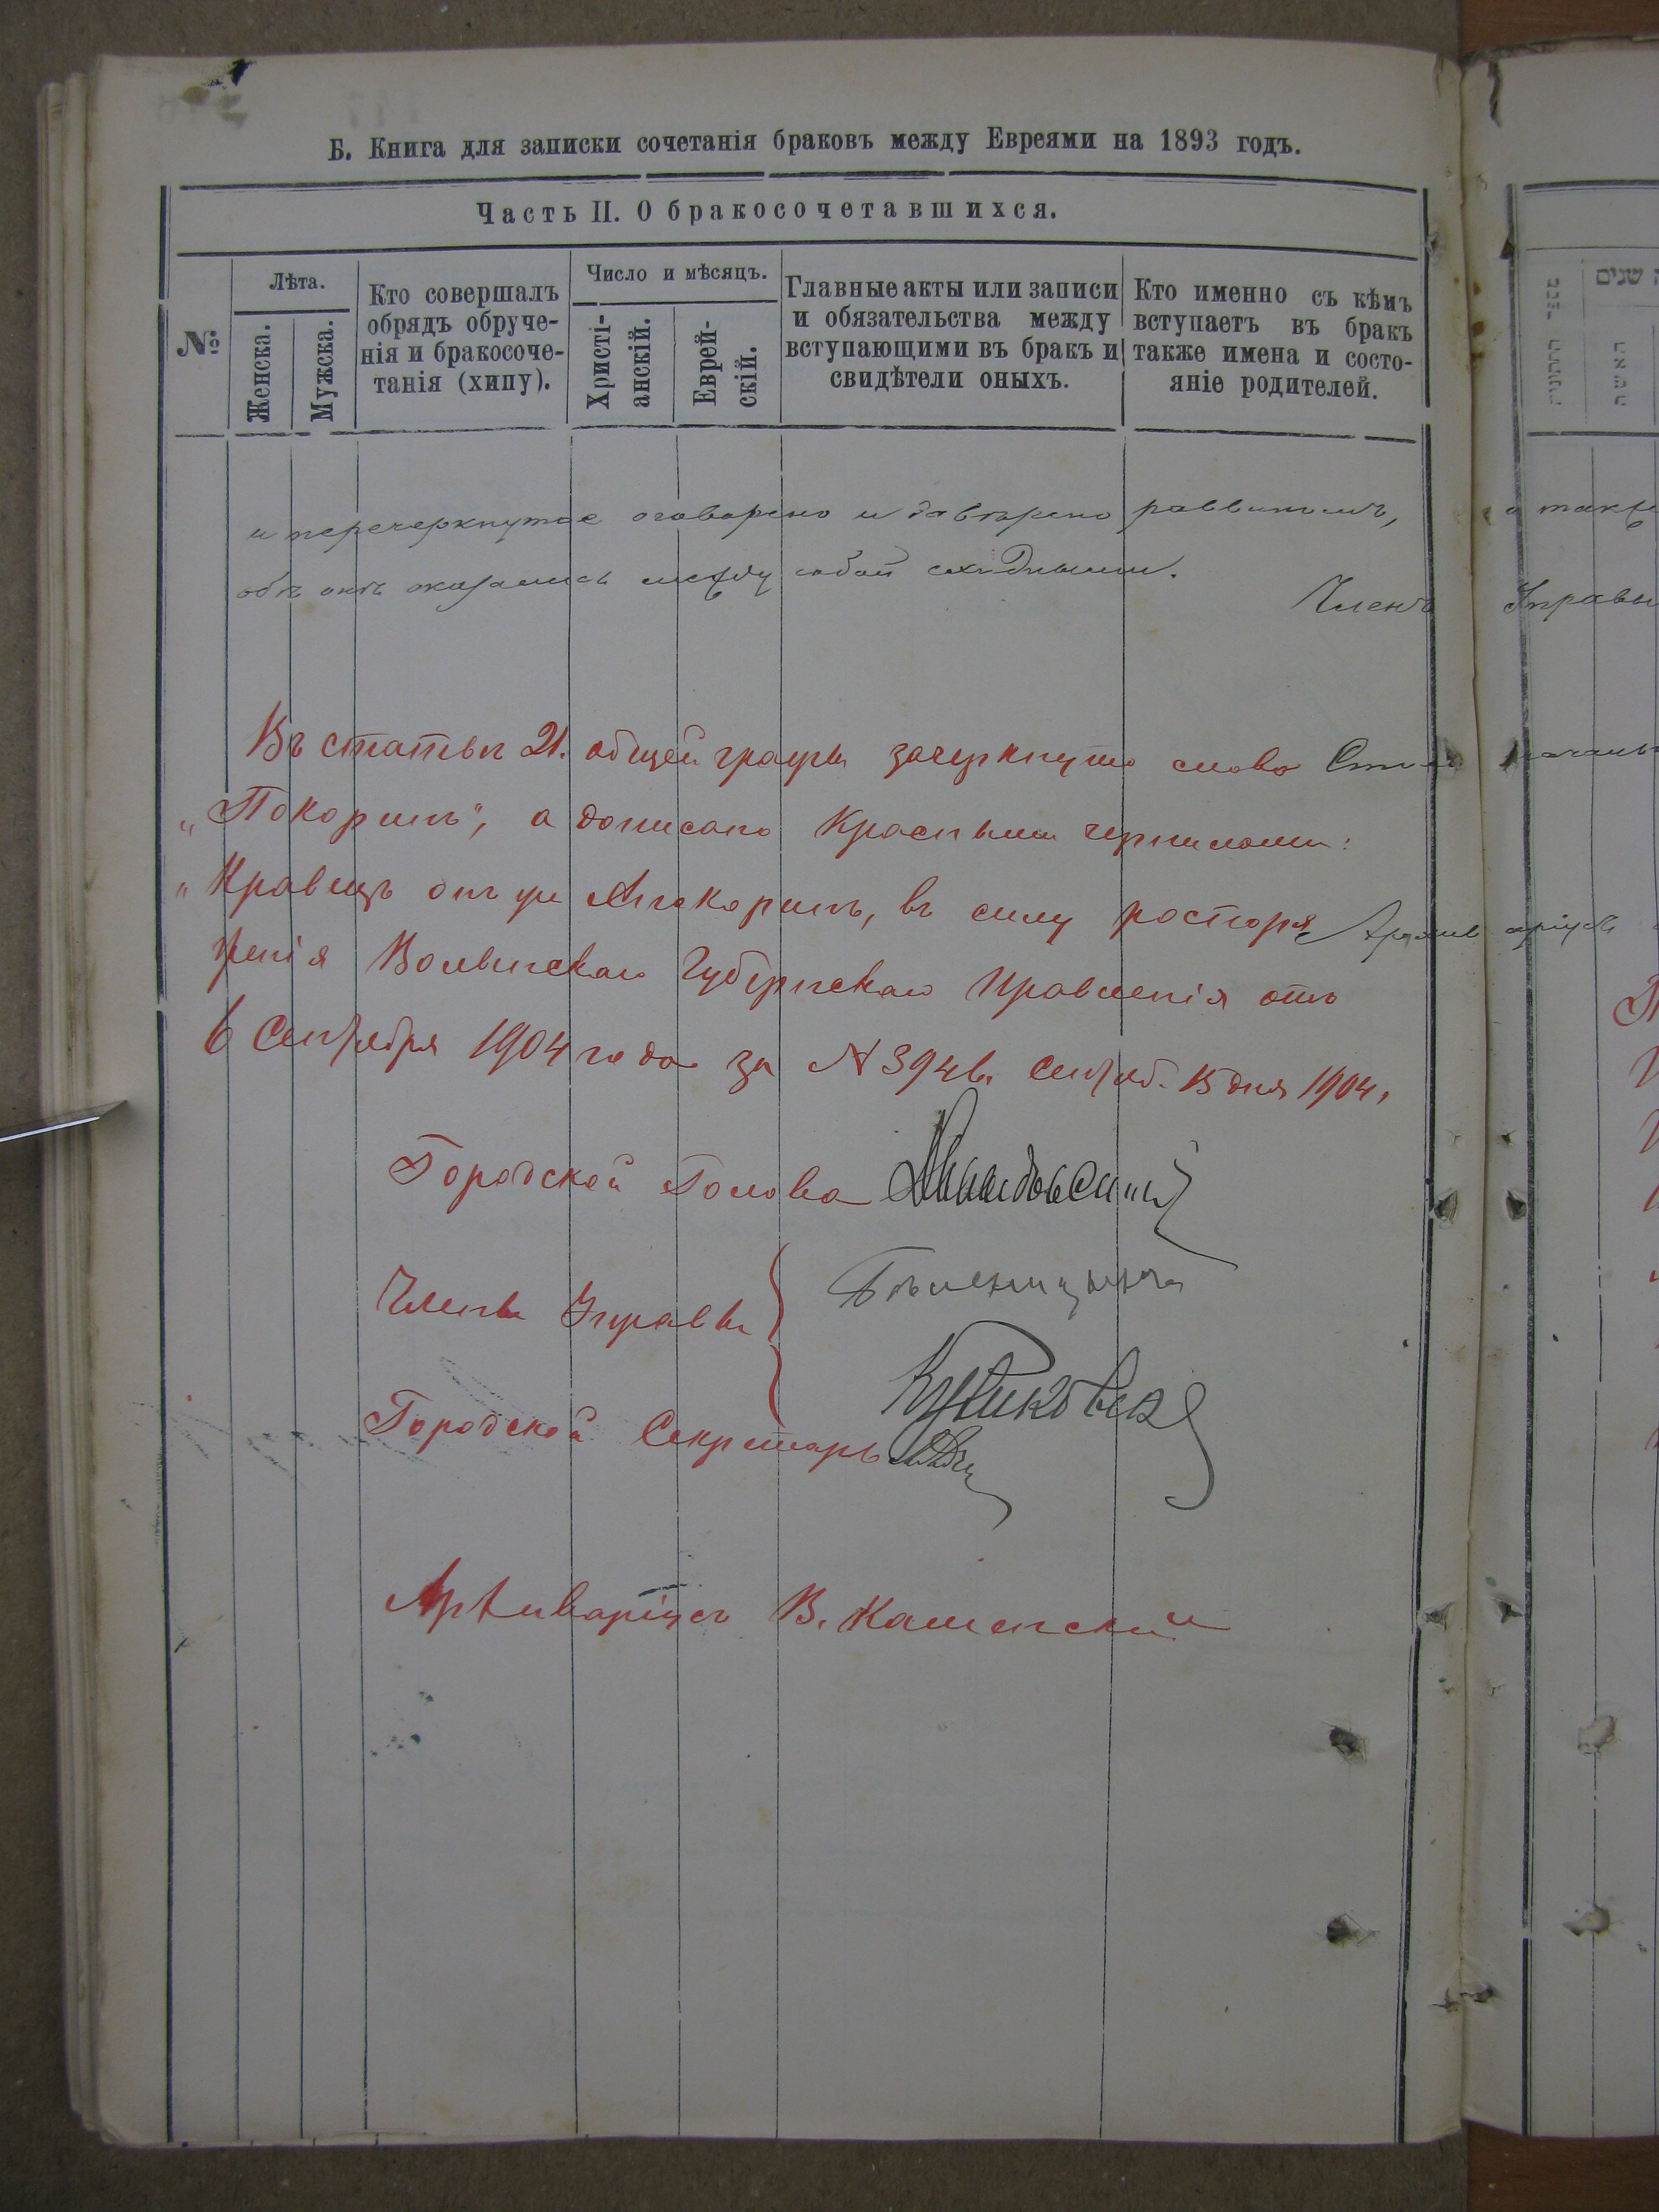 Б. Книга для записки сочетанія браковъ между Евреями на 1893 годъ.
Часть II. О бракосочетавшихся.
№
Лѣта.
Женска.
Мужска.
Кто совершалъ
обрядъ обруче-
нія и бракосоче-
танія (хипу).
Число и мѣсяцъ.
Христі-
анскій.
Еврей-
скій.
Главные акты или записи
и обязательства между
вступающими въ бракъ и
свидѣтели оныхъ.
Кто именно съ кѣмъ
вступаетъ въ бракъ
также имена и состо-
яніе родителей.
и перечеркнутое оговорено и завѣрено раввиномъ, а также
обѣ онѣ оказались между собой сходными.
Членъ Управы
Въ статьѣ 21. общей графы зачеркнуто слово
„Покоринъ", а дописано красными чернилами:
„Кравецъ онъ же Анокоринъ, въ силу распоря
женія Волынскаго Губернскаго Правленія отъ
6 Сентября 1904 года за № 3946. Сентяб. 15 дня 1904.
Городской Голова
Члены Управы
Городской Секретарь
Архиваріусъ В. Каменскій
שנים
האשה